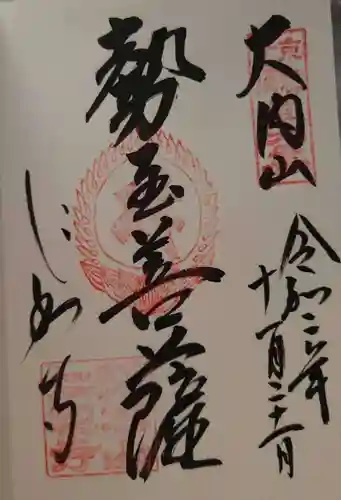 大内山
令和二年
十一月二十一日
勢至菩薩
仁和寺